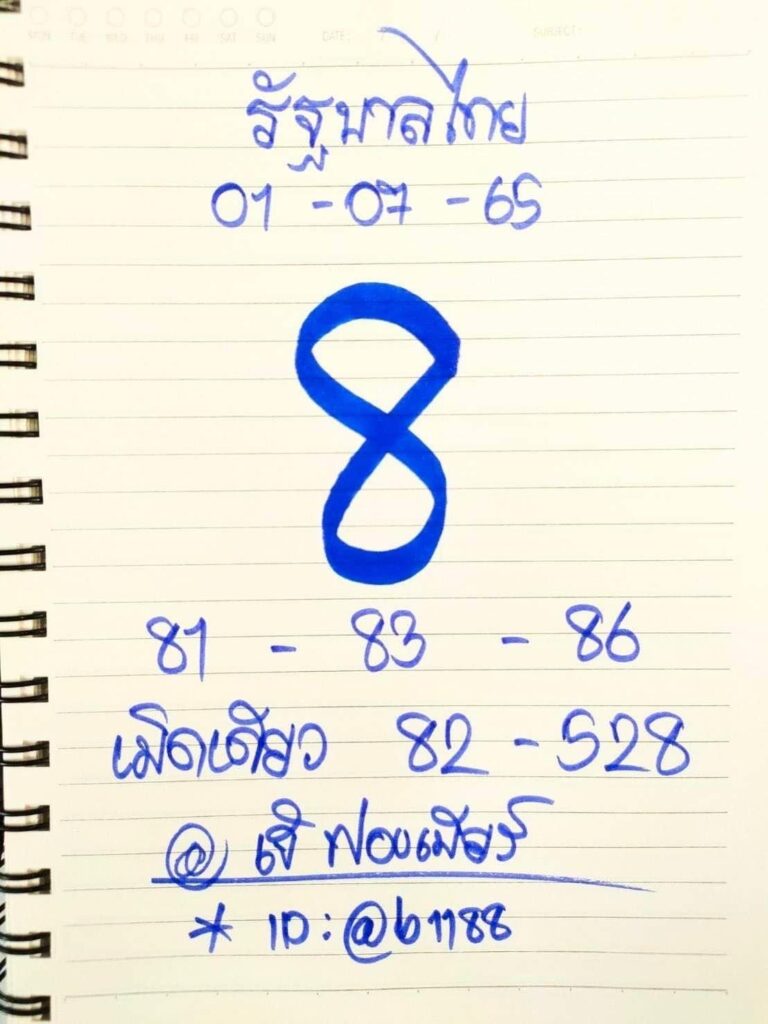 MON TUE WED THU FRI SAT SUN DATE: / / SUBJECT:
รัฐบาลไทย
01 - 07 - 65
8
81 - 83 - 86
เม็ดเดียว 82 - 528
@ เจ๊ฟองเบียร์
* ID : @b1188